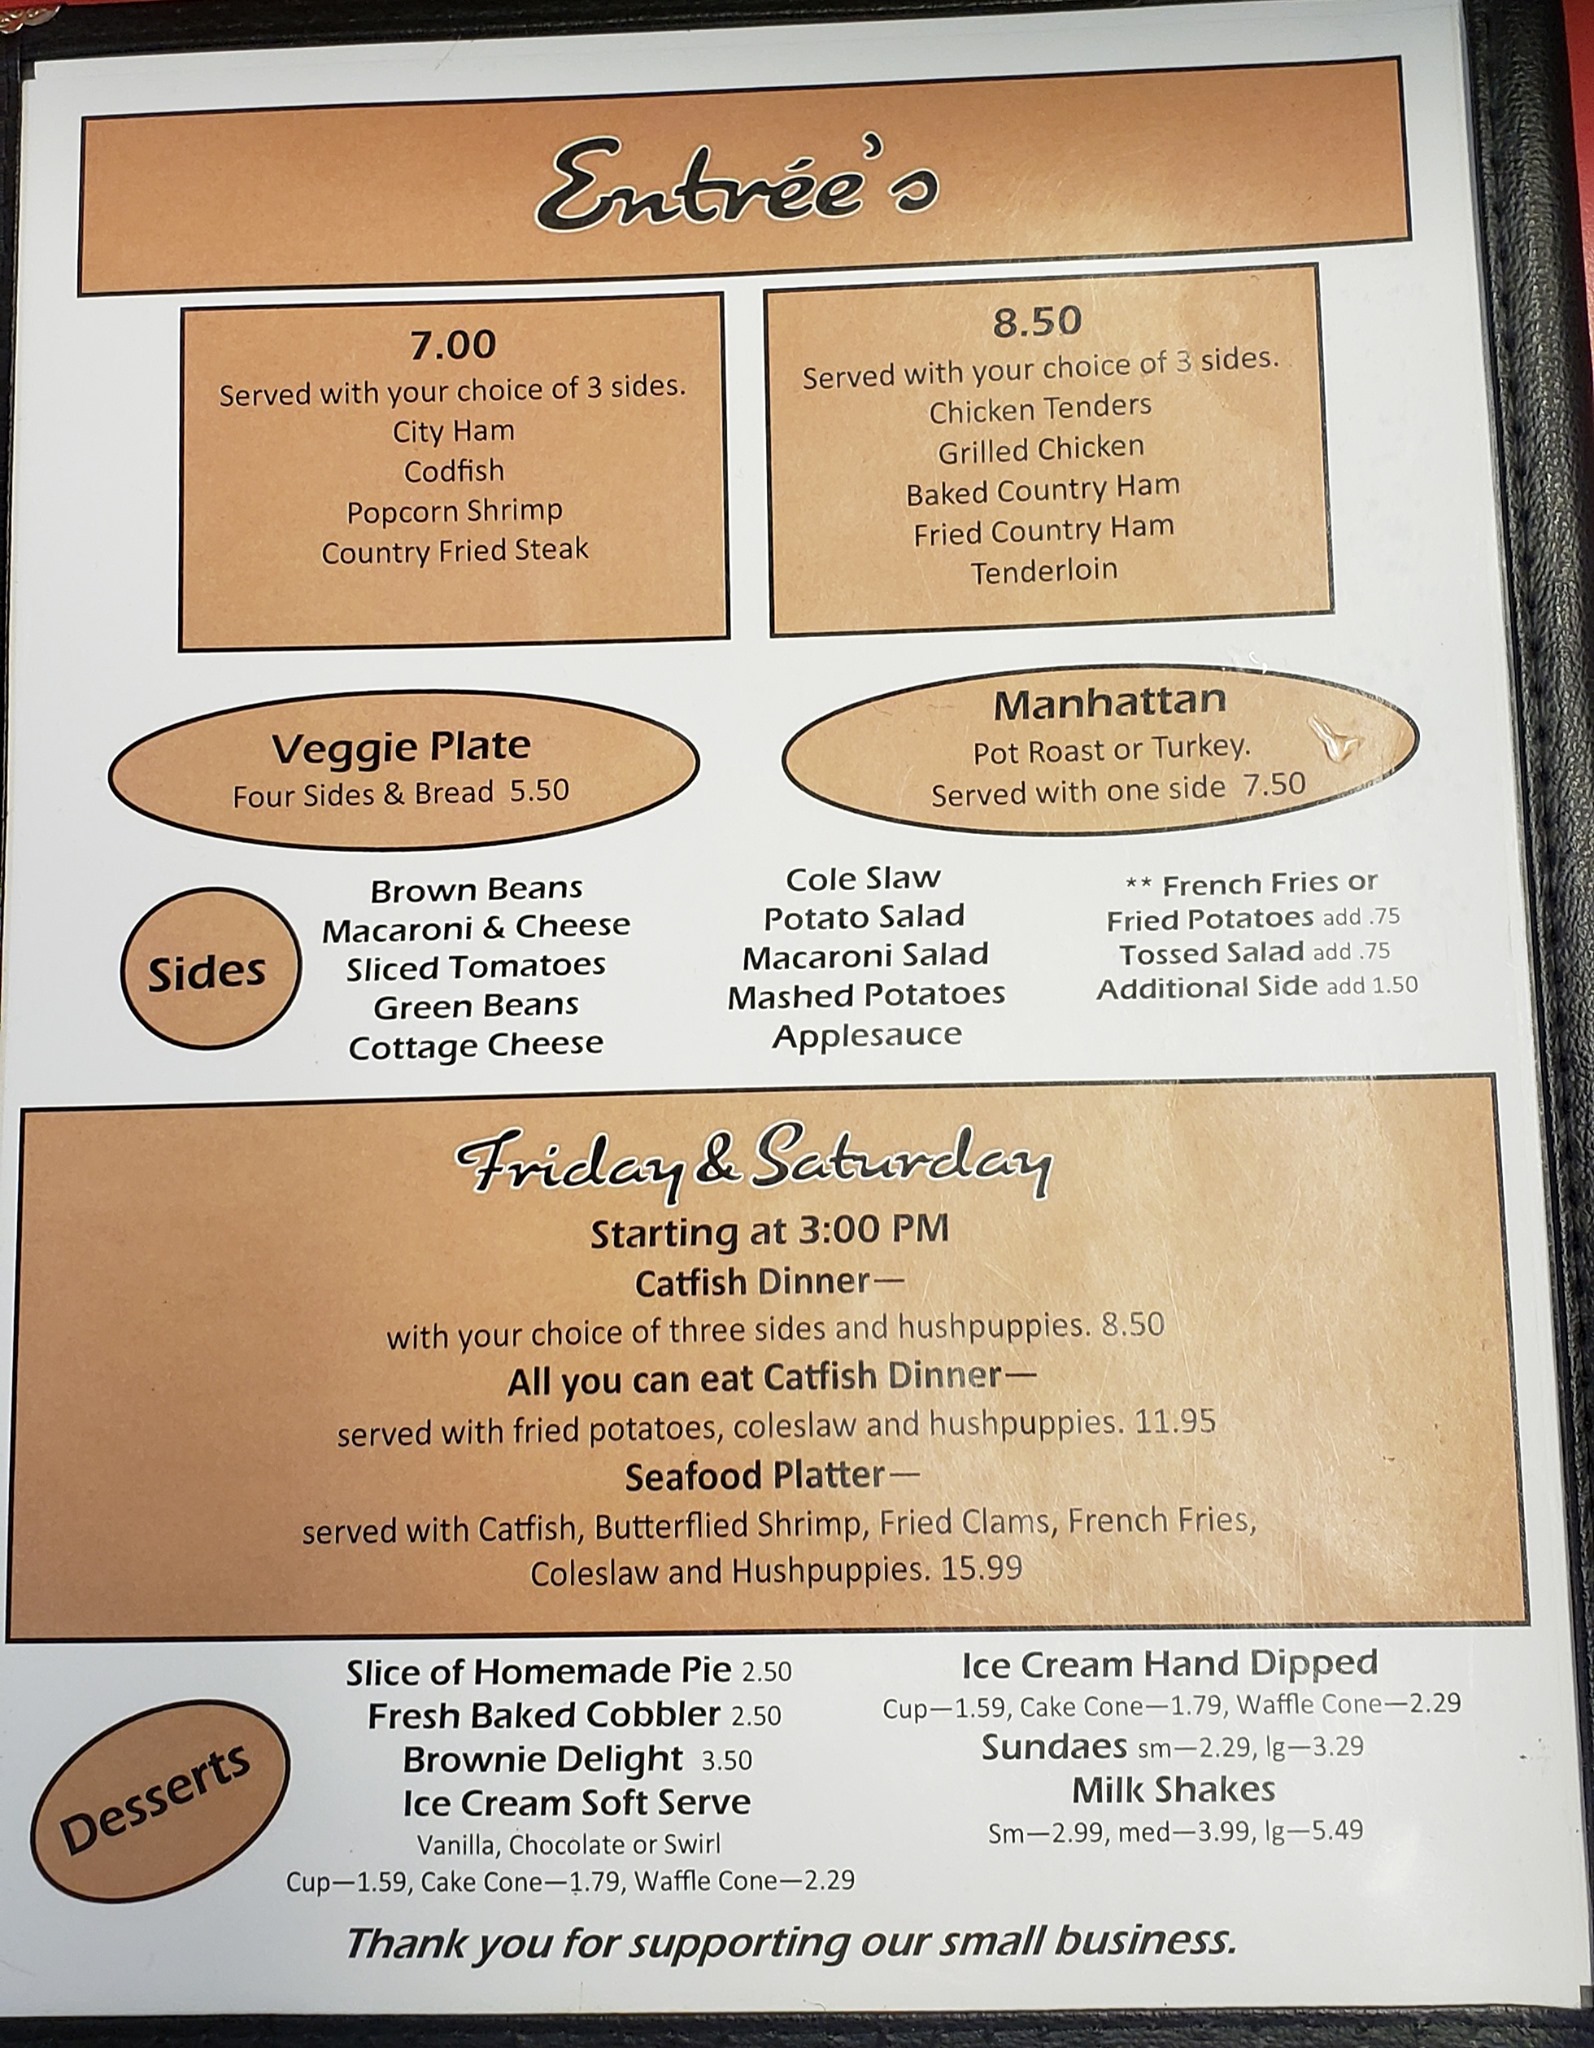 Entrée's
7.00
Served with your choice of 3 sides.
City Ham
Codfish
Popcorn Shrimp
Country Fried Steak
8.50
Served with your choice of 3 sides.
Chicken Tenders
Grilled Chicken
Baked Country Ham
Fried Country Ham
Tenderloin
Veggie Plate
Four Sides & Bread 5.50
Manhattan
Pot Roast or Turkey.
Served with one side 7.50
Sides
Brown Beans
Macaroni & Cheese
Sliced Tomatoes
Green Beans
Cottage Cheese
Cole Slaw
Potato Salad
Macaroni Salad
Mashed Potatoes
Applesauce
** French Fries or
Fried Potatoes add .75
Tossed Salad add .75
Additional Side add 1.50
Friday & Saturday
Starting at 3:00 PM
Catfish Dinner—
with your choice of three sides and hushpuppies. 8.50
All you can eat Catfish Dinner—
served with fried potatoes, coleslaw and hushpuppies. 11.95
Seafood Platter—
served with Catfish, Butterflied Shrimp, Fried Clams, French Fries,
Coleslaw and Hushpuppies. 15.99
Desserts
Slice of Homemade Pie 2.50
Fresh Baked Cobbler 2.50
Brownie Delight 3.50
Ice Cream Soft Serve
Vanilla, Chocolate or Swirl
Cup—1.59, Cake Cone—1.79, Waffle Cone—2.29
Ice Cream Hand Dipped
Cup—1.59, Cake Cone—1.79, Waffle Cone—2.29
Sundaes sm—2.29, lg—3.29
Milk Shakes
Sm—2.99, med—3.99, lg—5.49
Thank you for supporting our small business.